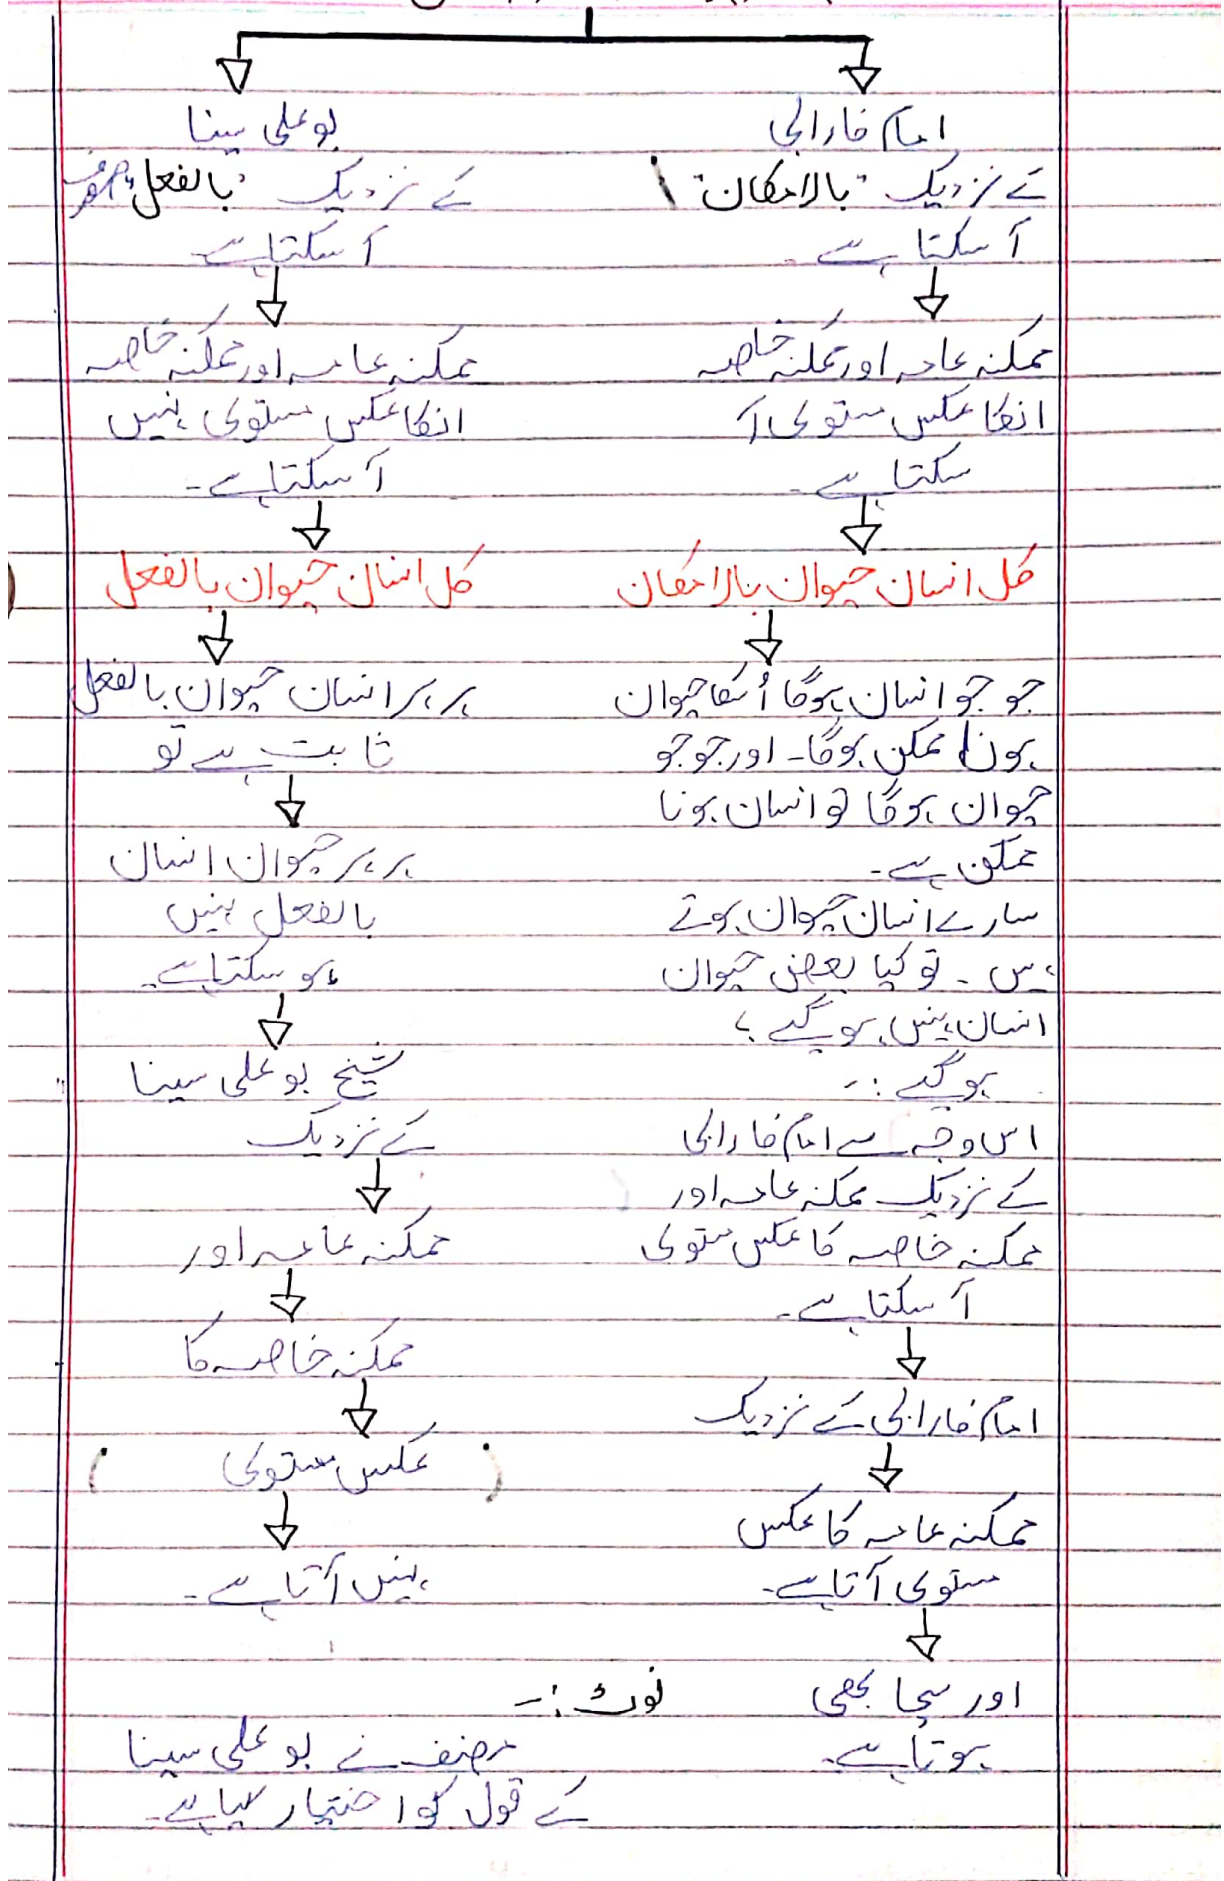 امام فارابی
کے نزدیک "بالامکان"
آ سکتا ہے۔
ممکنہ عامہ اور ممکنہ خاصہ
انکا عکس مستوی آ
سکتا ہے۔
کل انسان حیوان بالامکان
جو جو انسان ہوگا اُسکا حیوان
ہونا ممکن ہوگا۔ اور جو جو
حیوان ہوگا تو انسان ہونا
ممکن ہے۔
سارے انسان حیوان ہوتے
ہیں۔ تو کیا بعض حیوان
انسان نہیں ہوگے؟
ہوگے :-
اس وجہ سے امام فارابی
کے نزدیک ممکنہ عامہ اور
ممکنہ خاصہ کا عکس مستوی
آ سکتا ہے۔
امام فارابی کے نزدیک
ممکنہ عامہ کا عکس
مستوی آتا ہے۔
اور سچا بھی
ہوتا ہے۔
بو علی سینا
کے نزدیک "بالفعل"
آ سکتا ہے۔
ممکنہ عامہ اور ممکنہ خاصہ
انکا عکس مستوی نہیں
آ سکتا ہے۔
کل انسان حیوان بالفعل
ہر ہر انسان حیوان بالفعل
ثابت ہے تو
ہر ہر حیوان انسان
بالفعل نہیں
ہو سکتا ہے۔
شیخ بو علی سینا
کے نزدیک
ممکنہ عامہ اور
ممکنہ خاصہ کا
(عکس مستوی)
نہیں آتا ہے۔
نوٹ :-
مصنف نے بو علی سینا
کے قول کو اختیار کیا ہے۔